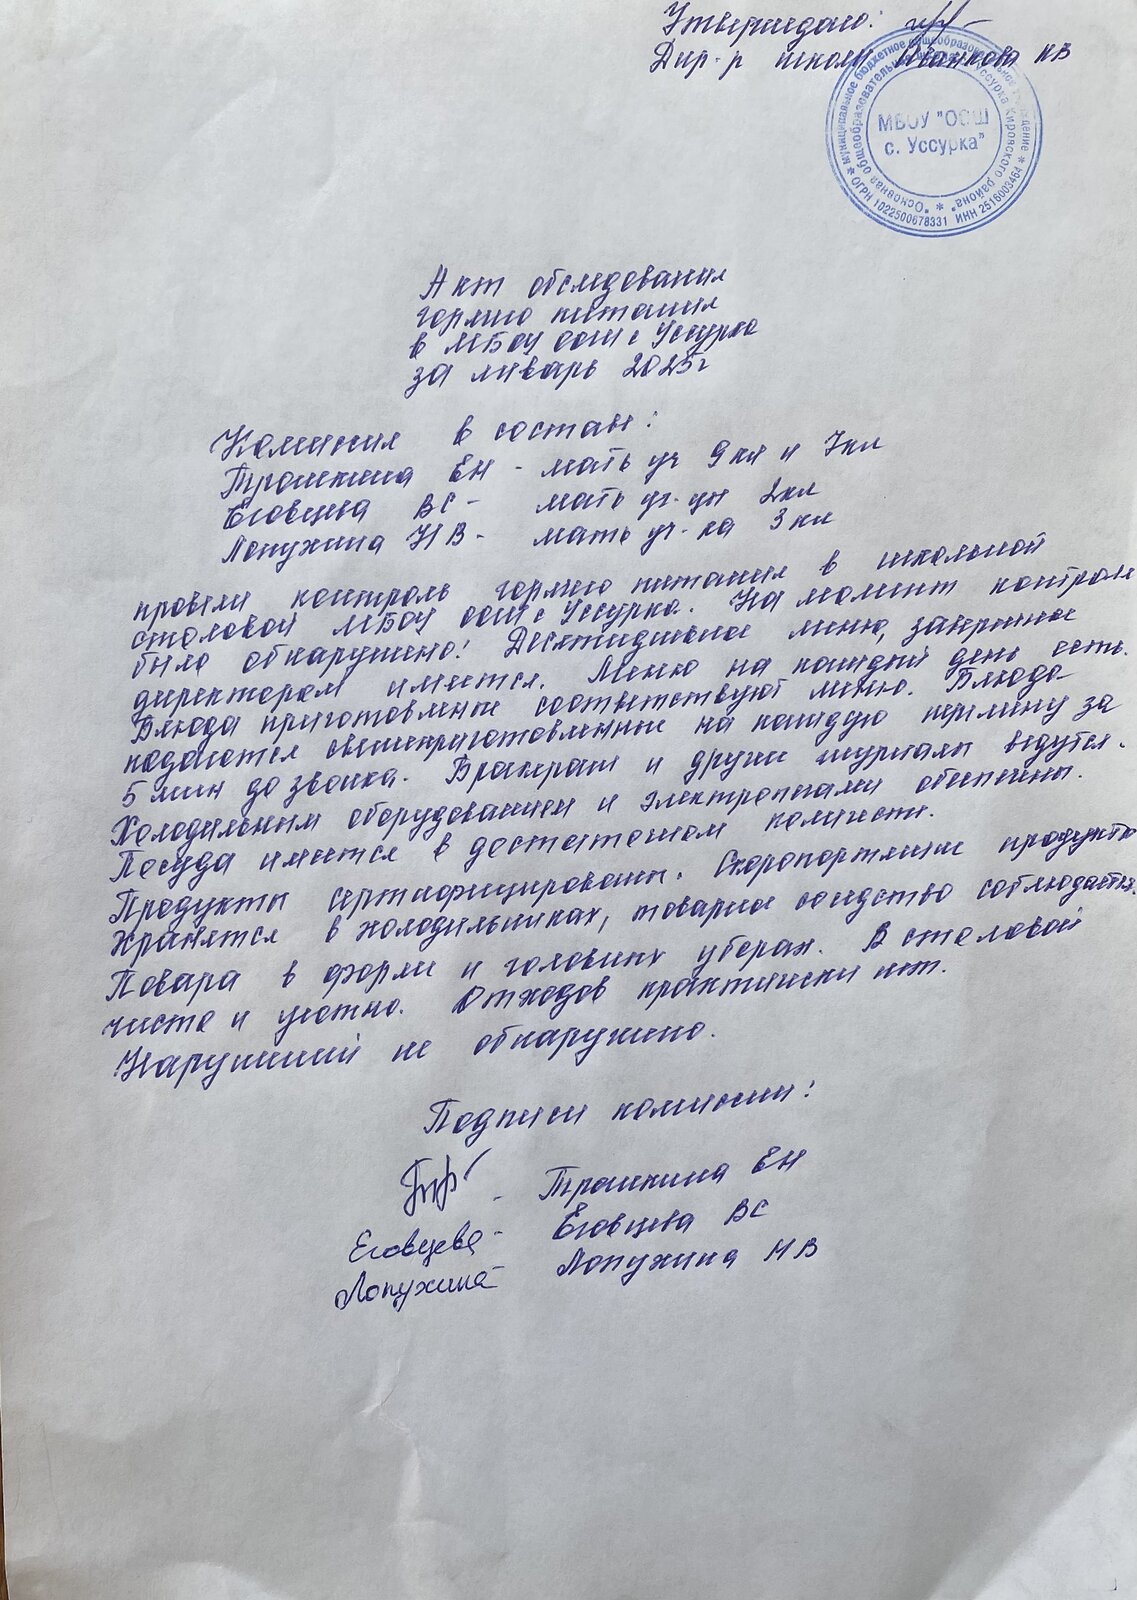 Утверждаю:
Дир-р школы Иванкова КВ
муниципальное бюджетное общеобразовательное учреждение * ОГРН 1022500678331 ИНН 2516003464 *
"Основная общеобразовательная школа с. Уссурка Кировского района" *
МБОУ "ООШ
с. Уссурка"
Акт обследования
горячего питания
в МБОУ ООШ с Уссурка
за январь 2025г
Комиссия в составе:
Трошкина ЕН - мать уч 9кл и 7кл
Еговцева ВС - мать уч-цы 2кл
Лопухина НВ - мать уч-ка 3кл
провели контроль горячего питания в школьной
столовой МБОУ ООШ с Уссурка. На момент контроля
было обнаружено: Десятидневное меню, заверенное
директором имеется. Меню на каждый день есть.
Блюда приготовленные соответствуют меню. Блюда
подаются свежеприготовленные на каждую перемену за
5 мин до звонка. Бракераж и другие журналы ведутся.
Холодильным оборудованием и электропечами обеспечены.
Посуда имеется в достаточном количестве.
Продукты сертифицированы. Скоропортящиеся продукты
хранятся в холодильниках, товарное соседство соблюдается.
Повара в форме и головных уборах. В столовой
чисто и уютно. Отходов практически нет.
Нарушений не обнаружено.
Подписи комиссии:
- Трошкина ЕН
Еговцева - Еговцева ВС
Лопухина - Лопухина НВ